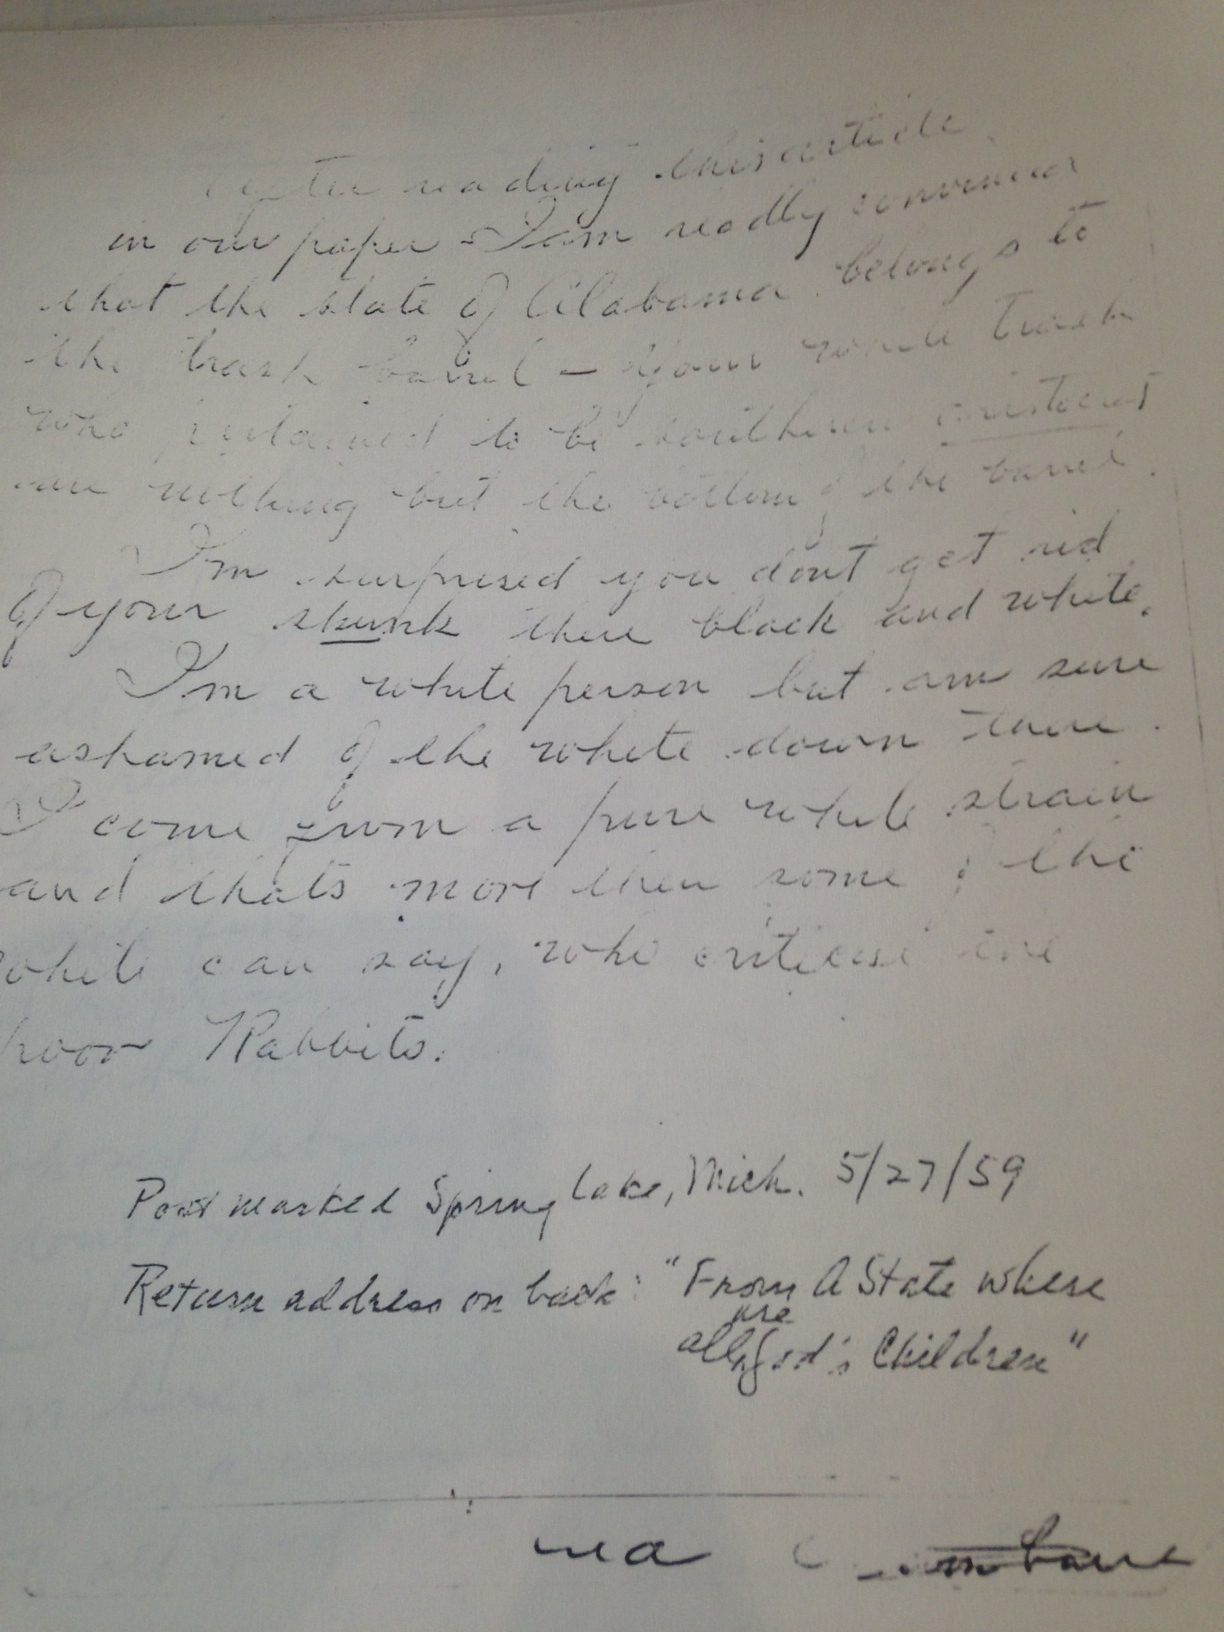 After reading this article
in our paper - I am readly convinced
that the state of Alabama belongs to
the trash barrel - Your white trash
who to be southern aristocrats
are nothing but the bottom of the barrel.
I'm surprised you dont get rid
of your skunk there black and white.
I'm a white person but am sure
ashamed of the white down there.
I come from a pure white strain
and thats more then some of the
white can say, who criticise the
poor Rabbits.
Postmarked Spring Lake, Mich. 5/27/59
Return address on back: "From A State where
all are God's Children"